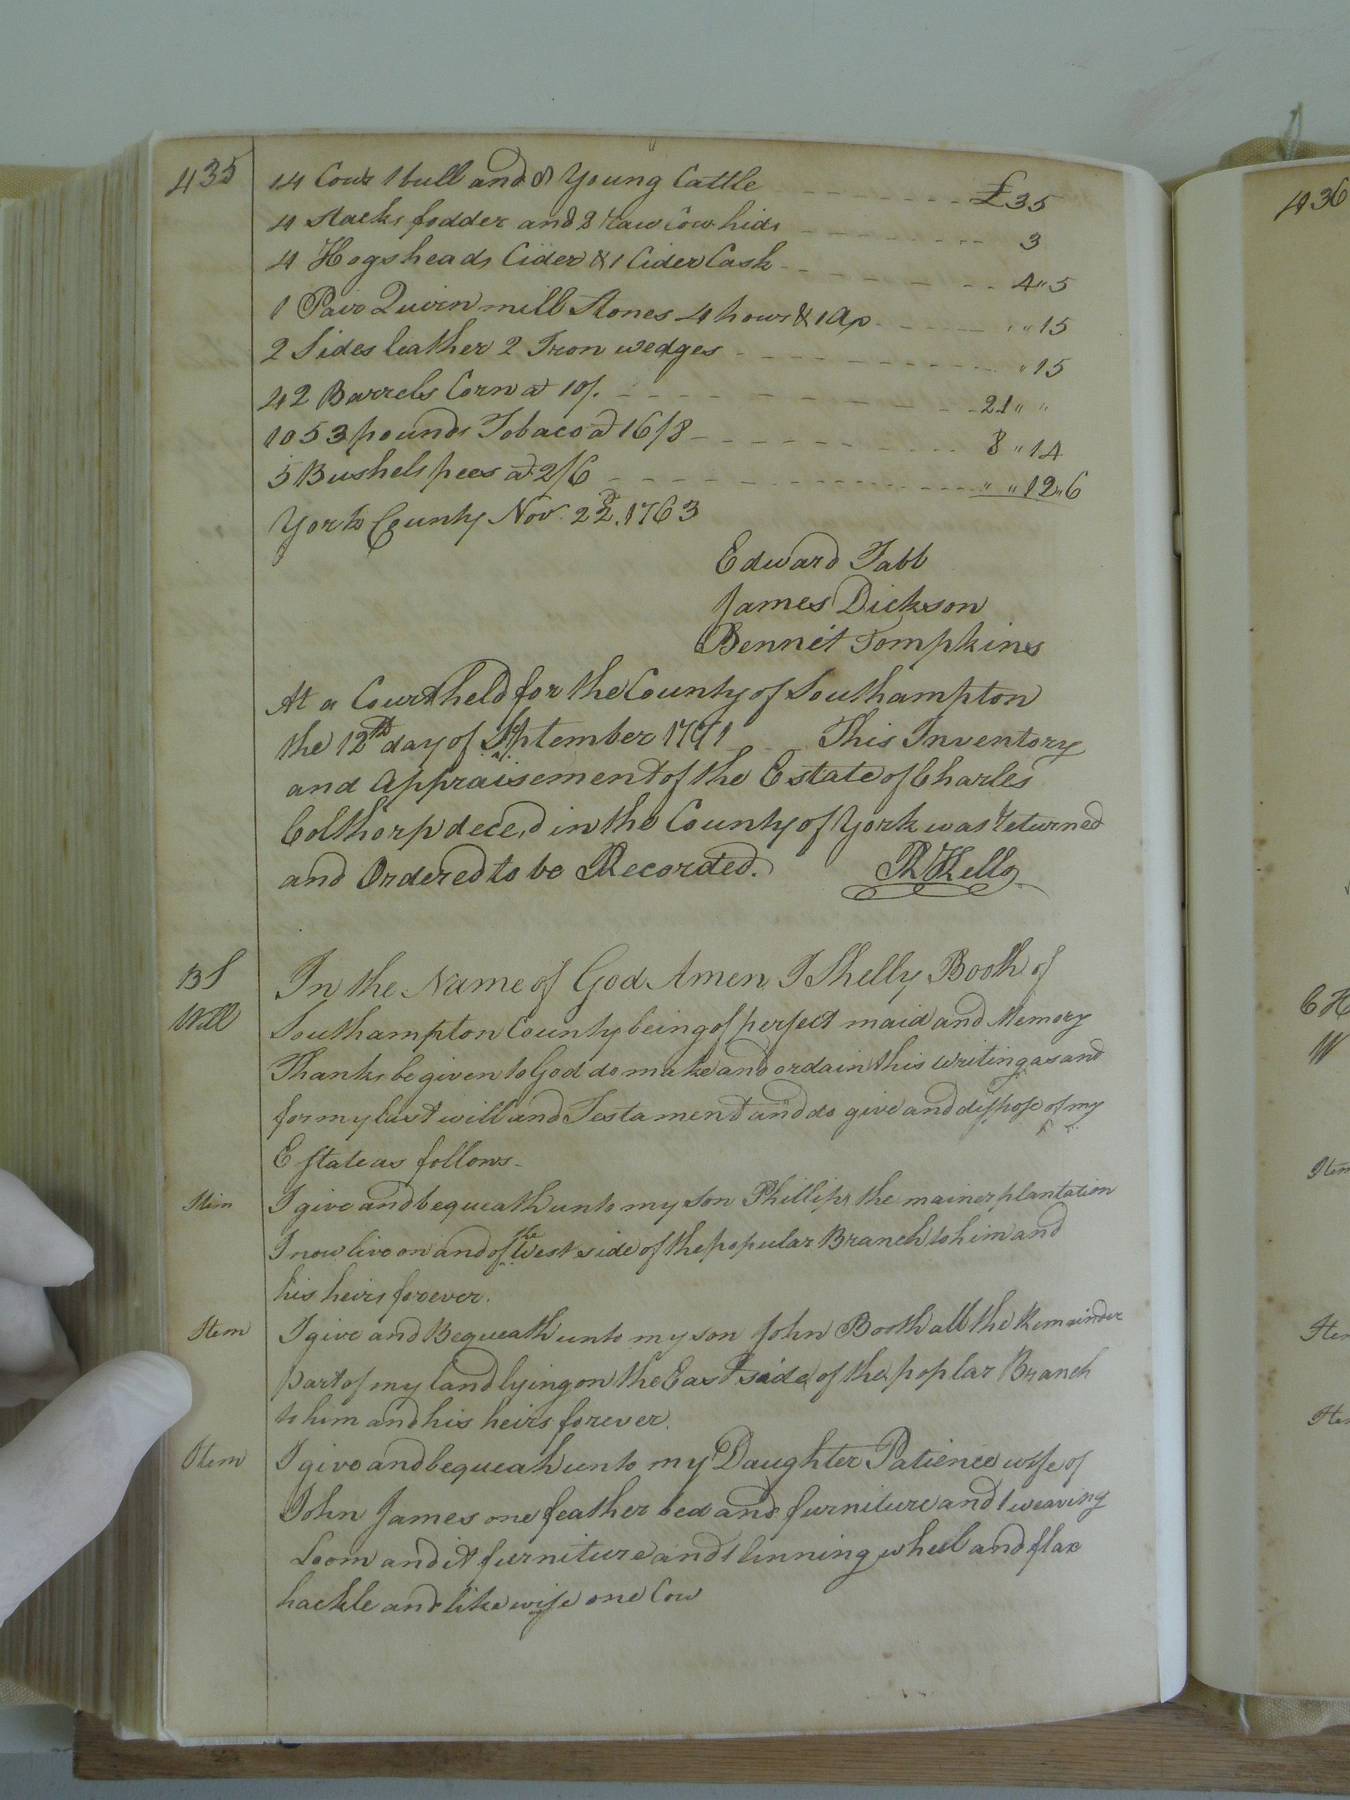 435
14 Cows 1 bull and 8 Young Cattle £35
4 stacks fodder and 2 raw Cow hids 3
4 Hogsheads Cider & 1 Cider Cask 4"5
1 Pair Quirn mill Stones 4 hows & 1 Ax " "15
2 Sides leather 2 Iron wedges "15
42 Barrels Corn at 10/. 21" "
1053 pounds Tobaco at 16/8 8"14
5 Bushels pees at 2/6 " "12"6
York County Nov. 22d. 1763
Edward Tabb
James Dickson
Bennit Tompkins
At a Court held for the County of Southampton
the 12th day of September 1771 This Inventory
and Appraisement of the Estate of Charles
Colthorp deced in the County of York was returned
and Ordered to be Recorded. R Kello
BS In the Name of God Amen I Shelly Booth of
Will Southampton County being of perfect maid and Memory
Thanks be given to God do make and ordain this writing as and
for my last will and Testament and do give and dispose of my
Estate as follows.
Item I give and bequeath unto my son Phillips the mainer plantation
I now live on and of the West side of the popular Branch to him and
his heirs forever.
Item I give and Bequeath unto my son John Booth all the Remainder
part of my land lying on the East side of the poplar Branch
to him and his heirs forever.
Item I give and bequeath unto my Daughter Patience wife of
John James one feather bed and furniture and 1 weaving
Loom and it furniture and 1 linning wheel and flax
hackle and likewise one Cow
436
Item